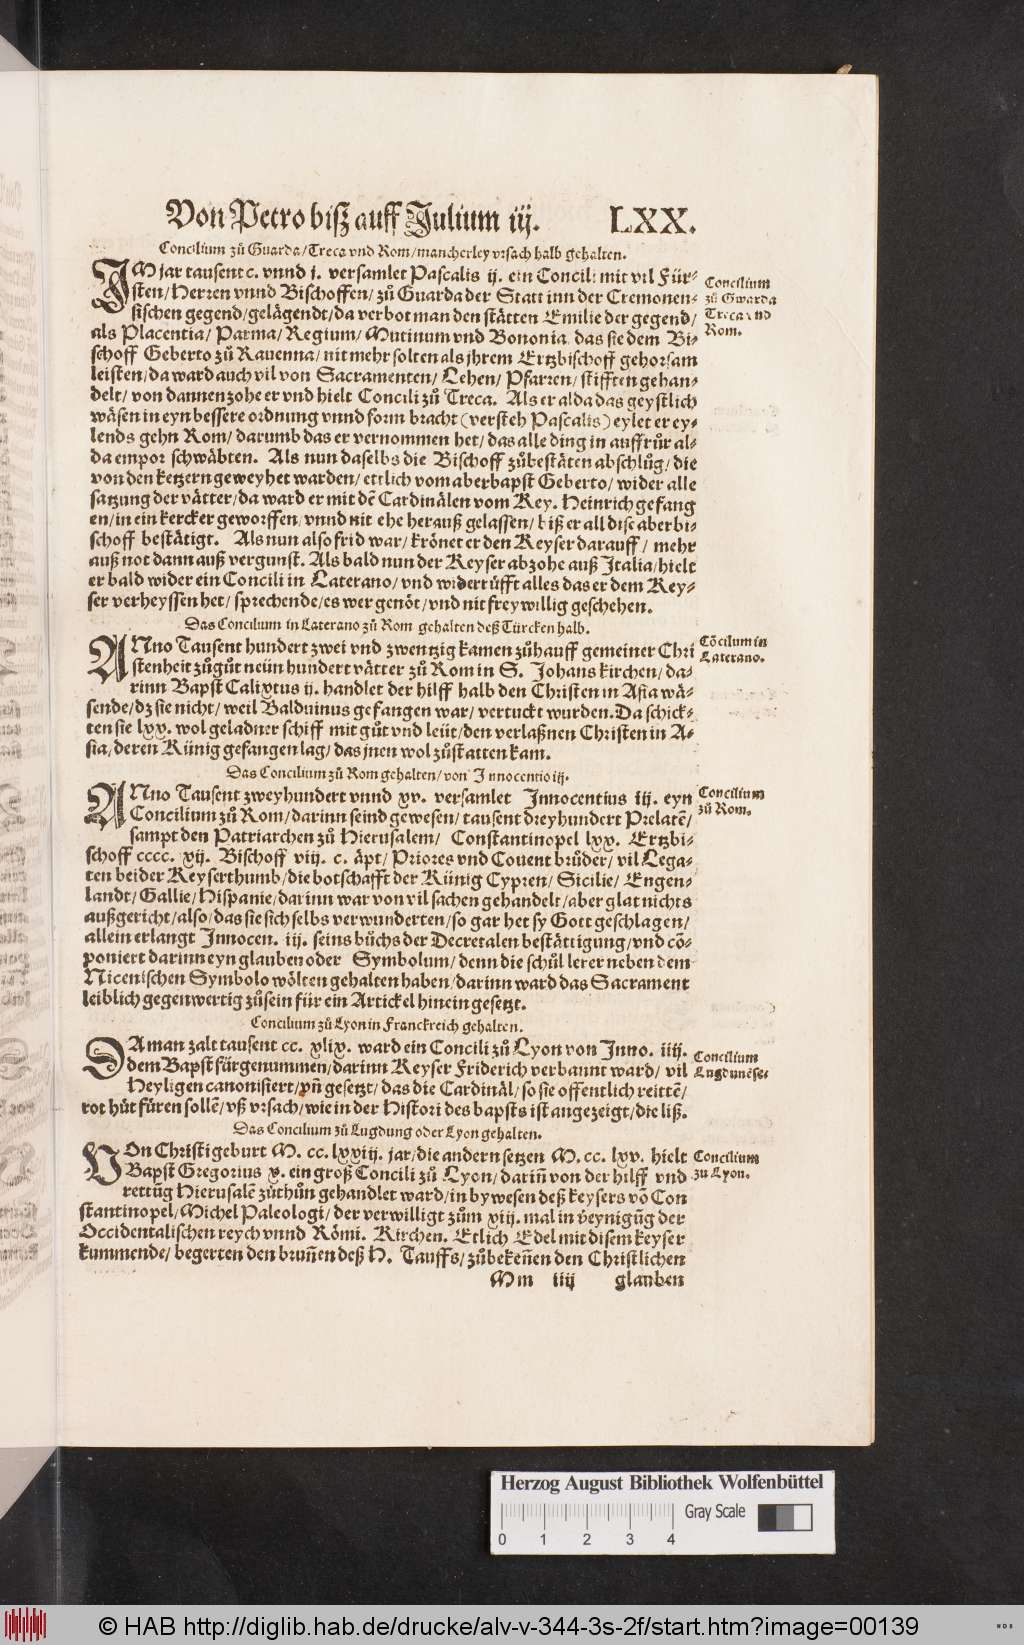 Von Petro biß auff Julium iij. LXX.
Concilium zů Guarda/Treca vnd Rom/mancherley vrsach halb gehalten.
IM jar tausent c. vnnd j. versamlet Pascalis ij. ein Concili mit vil Für⸗
sten/Herren vnnd Bischoffen/zů Guarda der Statt inn der Cremonen⸗
sischen gegend/gelägendt/da verbot man den stätten Emilie der gegend/
als Placentia/Parma/Regium/Mutinum vnd Bononia das sie dem Bi⸗
schoff Geberto zů Rauenna/nit mehr solten als jhrem Ertzbischoff gehorsam
leisten/da ward auch vil von Sacramenten/Lehen/Pfarren/stifften gehan⸗
delt/von dannen zohe er vnd hielt Concili zů Treca. Als er alda das geystlich
wäsen in eyn bessere ordnung vnnd form bracht (versteh Pascalis) eylet er ey⸗
lends gehn Rom/darumb das er vernommen het/das alle ding in auffrůr al⸗
da empor schwäbten. Als nun daselbs die Bischoff zůbestäten abschlůg/die
von den ketzern geweyhet warden/ettlich vom aberbapst Geberto/wider alle
satzung der vätter/da ward er mit dē Cardinälen vom Key. Heinrich gefang
en/in ein kercker geworffen/vnnd nit ehe herauß gelassen/biß er all dise aberbi⸗
schoff bestätigt. Als nun also frid war/krönet er den Keyser darauff/mehr
auß not dann auß vergunst. Als bald nun der Keyser abzohe auß Italia/hielt
er bald wider ein Concili in Laterano/vnd widerrüfft alles das er dem Key⸗
ser verheyssen het/sprechende/es wer genöt/vnd nit freywillig geschehen.
Concilium
zů Gwarda
Treca vnd
Rom.
Das Concilium in Laterano zů Rom gehalten deß Türcken halb.
ANno Tausent hundert zwei vnd zwentzig kamen zůhauff gemeiner Chri
stenheit zůgůt neün hundert vätter zů Rom in S. Johans kirchen/da⸗
rinn Bapst Calixtus ij. handlet der hilff halb den Christen in Asia wä⸗
sende/dz sie nicht/weil Balduinus gefangen war/vertuckt wurden. Da schick⸗
ten sie lxx. wol geladner schiff mit gůt vnd leüt/den verlaßnen Christen in A⸗
sia/deren Künig gefangen lag/das jnen wol zůstatten kam.
Cōcilum in
Laterano.
Das Concilium zů Rom gehalten/von Innocentio iij.
ANno Tausent zweyhundert vnnd xv. versamlet Innocentius iij. eyn
Concilium zů Rom/darinn seind gewesen/tausent dreyhundert Prelatē/
sampt den Patriarchen zů Hierusalem/Constantinopel lxx. Ertzbi⸗
schoff cccc. xij. Bischoff viij. c. äpt/Priores vnd Couent brůder/vil Lega⸗
ten beider Keyserthumb/die botschafft der Künig Cypren/Sicilie/Engen⸗
landt/Gallie/Hispanie/darinn war von vil sachen gehandelt/aber glat nichts
außgericht/also/das sie sich selbs verwunderten/so gar het sy Gott geschlagen/
allein erlangt Innocen. iij. seins bůchs der Decretalen bestättigung/vnd cō⸗
poniert darinn eyn glauben oder Symbolum/denn die schůl lerer neben dem
Nicenischen Symbolo wölten gehalten haben/darinn ward das Sacrament
leiblich gegenwertig zůsein für ein Artickel hinein gesetzt.
Concilium
zů Rom.
Concilium zů Lyon in Franckreich gehalten.
DA man zalt tausent cc. xlix. ward ein Concili zů Lyon von Inno. iiij.
dem Bapst fürgenummen/darinn Keyser Friderich verbannt ward/vil
Heyligen canonisiert/vn̄ gesetzt/das die Cardinäl/so sie offentlich reittē/
rot hüt füren sollē/vß vrsach/wie in der Histori des bapsts ist angezeigt/die liß.
Concilium
Lugdunēse.
Das Concilium zů Lugdung oder Lyon gehalten.
VOn Christi geburt M. cc. lxxiij. jar/die andern setzen M. cc. lxv. hielt
Bapst Gregorius x. ein groß Concili zů Lyon/darin̄ von der hilff vnd
rettūg Hierusalē zůthůn gehandlet ward/in bywesen deß keysers vō Con
stantinopel/Michel Paleologi/der verwilligt zům xiij. mal in v̄eynigūg der
Occidentalischen reych vnnd Römi. Kirchen. Etlich Edel mit disem keyser
kummende/begerten den brun̄en deß H. Tauffs/zůbeken̄en den Christlichen
Concilium
zu Lyon.
Mm iiij glauben
Herzog August Bibliothek Wolfenbüttel
Gray Scale
0 1 2 3 4
© HAB http://diglib.hab.de/drucke/alv-v-344-3s-2f/start.htm?image=00139